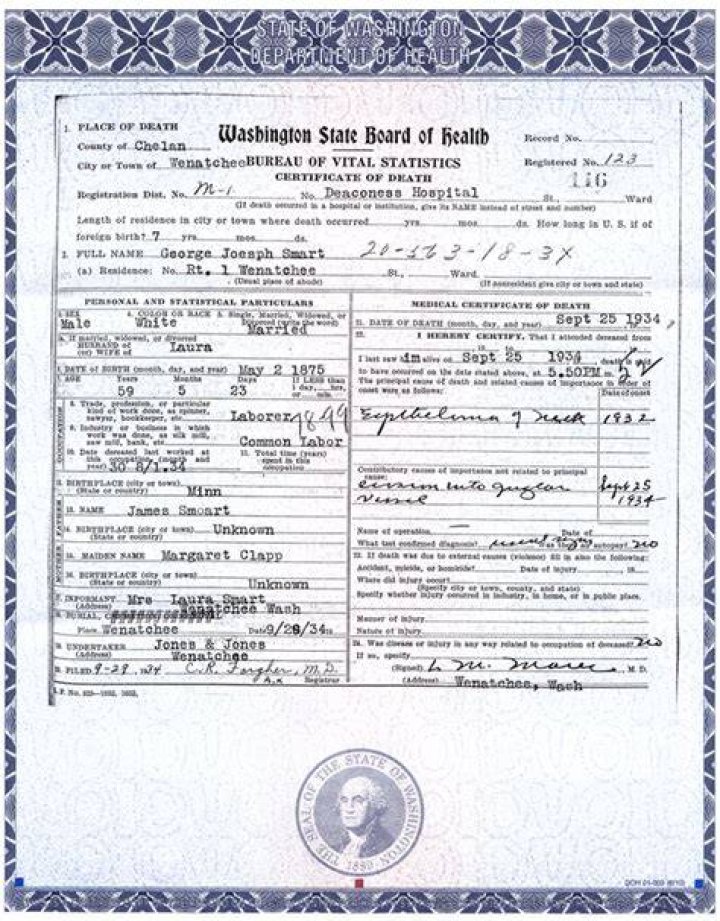 STATE OF WASHINGTON
DEPARTMENT OF HEALTH
1. PLACE OF DEATH
County of Chelan
City or Town of Wenatchee
Registration Dist. No. M-1
Washington State Board of Health
BUREAU OF VITAL STATISTICS
CERTIFICATE OF DEATH
No. Deaconess Hospital St., Ward
(If death occurred in a hospital or institution, give its NAME instead of street and number)
Record No.
Registered No. 123
116
Length of residence in city or town where death occurred yrs. mos. ds. How long in U. S. if of
foreign birth? 7 yrs. mos. ds.
2. FULL NAME George Joesph Smart
(a) Residence: No. Rt. 1 Wenatchee St., Ward.
(Usual place of abode) (If nonresident give city or town and state)
PERSONAL AND STATISTICAL PARTICULARS
3. SEX 4. COLOR OR RACE 5. Single, Married, Widowed, or
Divorced (write the word)
Male White Married
If married, widowed, or divorced
HUSBAND of
(or) WIFE of Laura
DATE OF BIRTH (month, day, and year) May 2 1875
AGE Years Months Days If LESS than
1 day, hrs.
or min.
59 5 23
OCCUPATION
8. Trade, profession, or particular
kind of work done, as spinner,
sawyer, bookkeeper, etc. Laborer
9. Industry or business in which
work was done, as silk mill,
saw mill, bank, etc. Common Labor
10. Date deceased last worked at
this occupation (month and
year) 30 8/1.34
11. Total time (years)
spent in this
occupation
BIRTHPLACE (city or town)
(State or country) Minn
FATHER
13. NAME James Smoart
14. BIRTHPLACE (city or town) Unknown
(State or country)
MOTHER
15. MAIDEN NAME Margaret Clapp
16. BIRTHPLACE (city or town)
(State or country) Unknown
17. INFORMANT Mrs Laura Smart
(Address) Wenatchee Wash
BURIAL,
Place Wenatchee Date 9/28/34
UNDERTAKER Jones & Jones
(Address) Wenatchee
FILED 9-28, 1934 M.D.
Registrar
MEDICAL CERTIFICATE OF DEATH
21. DATE OF DEATH (month, day, and year) Sept 25 1934
22. I HEREBY CERTIFY, That I attended deceased from
to
I last saw him alive on Sept 25 1934 death is said
to have occurred on the date stated above, at 5.50PM m.
The principal cause of death and related causes of importance in order of
onset were as follows: Date of onset
Epithelioma of Neck 1932
Contributory causes of importance not related to principal
cause:
vessel Sept 25
1934
Name of operation Date of
What test confirmed diagnosis? Was there an autopsy? no
23. If death was due to external causes (violence) fill in also the following:
Accident, suicide, or homicide? Date of injury 19
Where did injury occur?
(Specify city or town, county, and state)
Specify whether injury occurred in industry, in home, or in public place.
Manner of injury
Nature of injury
24. Was disease or injury in any way related to occupation of deceased? no
If so, specify
(Signed) M. D.
(Address) Wenatchee, Wash
THE SEAL OF THE STATE OF WASHINGTON
1889